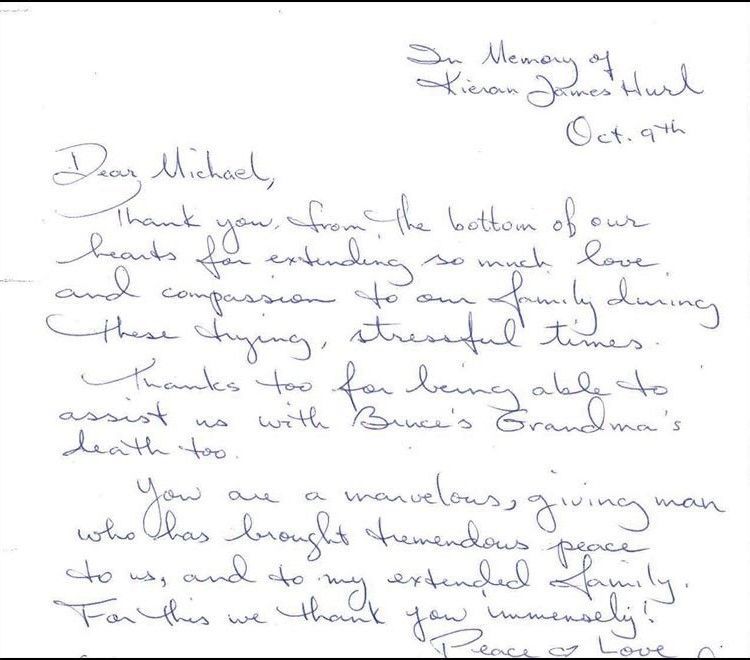 In Memory of
Kieran James Hurl
Oct. 9th
Dear Michael,
Thank you from the bottom of our
hearts for extending so much love
and compassion to our family during
these trying, stressful times.
Thanks too for being able to
assist us with Bruce's Grandma's
death too.
You are a marvelous, giving man
who has brought tremendous peace
to us, and to my extended family.
For this we thank you immensely!
Peace & Love